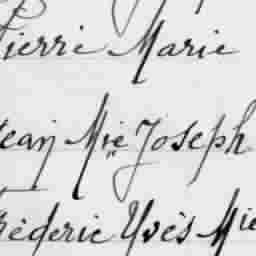 Pierre Marie
Jean Mie Joseph
Fréderic Yves Mie